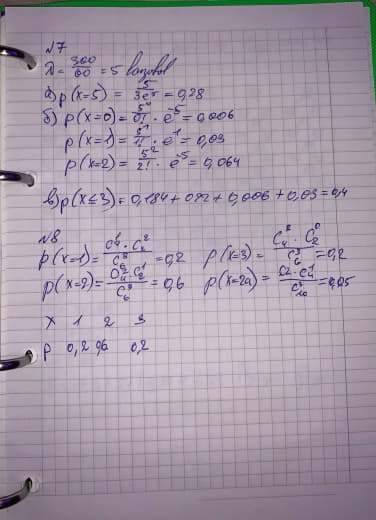 №7
λ = 300/60 = 5 вызовов
а) p(x=5) = 5/3e⁵ = 0,28
б) p(x=0) = 5⁰/0! · e⁻⁵ = 0,006
p(x=1) = 5¹/1! · e⁻¹ = 0,03
p(x=2) = 5²/2! · e⁻⁵ = 0,064
в) p(x≤3) = 0,184 + 082 + 0,006 + 0,03 = 0,4
№8
p(x=1) = C₄¹ · C₂²/C₆³ = 0,2 p(x=3) = C₄³ · C₂⁰/C₆³ = 0,2
p(x=2) = C₄² C₂¹/C₆³ = 0,6 p(x=2a) = = 0,05
X 1 2 3
p 0,2 0,6 0,2